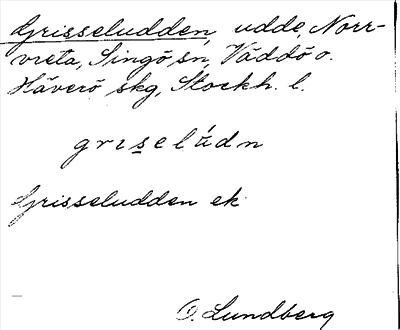 Grisseludden, udde, Norr-
vreta, Singö sn, Väddö o.
Häverö skg, Stockh. l.
grıselúdn
Grisseludden ek
O. Lundberg